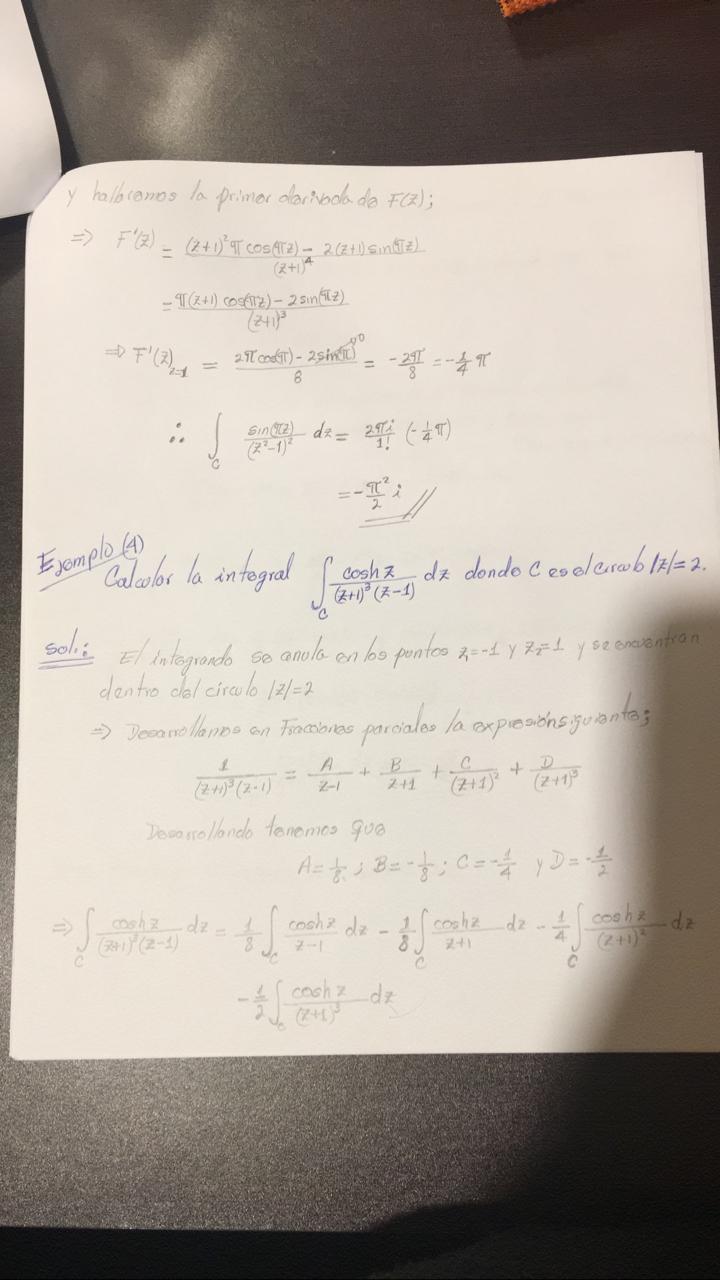 y hallaremos la primer derivada de F(z);
⇒ F'(z) = \frac{(z+1)^2 π cos(πz) - 2(z+1) sin(πz)}{(z+1)^4}
= \frac{π(z+1) cos(πz) - 2 sin(πz)}{(z+1)^3}
⇒ F'(z)_{z=1} = \frac{2π cos(π) - 2 sin(π)^{→0}}{8} = -\frac{2π}{8} = -\frac{1}{4} π
∴ ∫_C \frac{sin(πz)}{(z^2-1)^2} dz = \frac{2πi}{1!} (-\frac{1}{4}π)
= -\frac{π^2}{2} i //
Ejemplo (4)
Calcular la integral ∫_C \frac{cosh z}{(z+1)^3 (z-1)} dz donde C es el circulo |z|=2.
Sol.: El integrando se anula en los puntos z_1=-1 y z_2=1 y se encuentran
dentro del circulo |z|=2
⇒ Desarrollamos en Fracciones parciales la expresión siguiente;
\frac{1}{(z+1)^3 (z-1)} = \frac{A}{z-1} + \frac{B}{z+1} + \frac{C}{(z+1)^2} + \frac{D}{(z+1)^3}
Desarrollando tenemos que
A = \frac{1}{8} ; B = -\frac{1}{8} ; C = -\frac{1}{4} y D = -\frac{1}{2}
⇒ ∫_C \frac{cosh z}{(z+1)^3 (z-1)} dz = \frac{1}{8} ∫_C \frac{cosh z}{z-1} dz - \frac{1}{8} ∫_C \frac{cosh z}{z+1} dz - \frac{1}{4} ∫_C \frac{cosh z}{(z+1)^2} dz
- \frac{1}{2} ∫_C \frac{cosh z}{(z+1)^3} dz